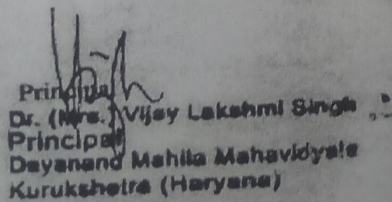 Principal
Dr. (Mrs.) Vijay Lakshmi Singh
Principal
Dayanand Mahila Mahavidyala
Kurukshetra (Haryana)